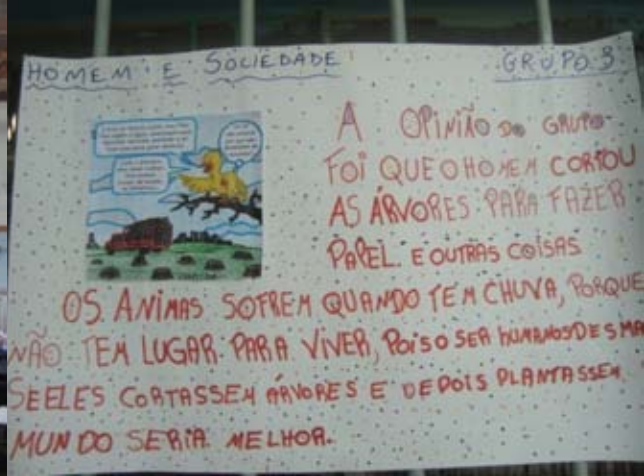 HOMEM E SOCIEDADE GRUPO 3
A OPINIÃO DO GRUPO
FOI QUE O HOMEM CORTOU
AS ÁRVORES PARA FAZER
PAPEL E OUTRAS COISAS
OS ANIMAS SOFREM QUANDO TEM CHUVA, PORQUE
NÃO TEM LUGAR PARA VIVER, POIS O SER HUMANOS DESMA
SE ELES CORTASSEM ÁRVORES E DEPOIS PLANTASSEM
MUNDO SERIA MELHOR.